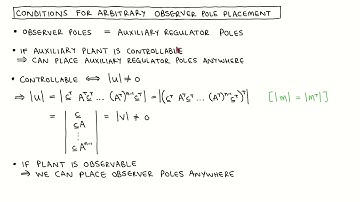 CONDITIONS FOR ARBITRARY OBSERVER POLE PLACEMENT
• OBSERVER POLES = AUXILIARY REGULATOR POLES
• IF AUXILIARY PLANT IS CONTROLLABLE
⇒ CAN PLACE AUXILIARY REGULATOR POLES ANYWHERE
• CONTROLLABLE ⟺ |U| ≠ 0
⇒ |U| = |C^T A^T C^T ... (A^T)^{n-1} C^T| = |(C^T A^T C^T ... (A^T)^{n-1} C^T)^T| [|M| = |M^T|]
= | C
CA
⋮
CA^{n-1} | = |V| ≠ 0
• IF PLANT IS OBSERVABLE
⇒ WE CAN PLACE OBSERVER POLES ANYWHERE